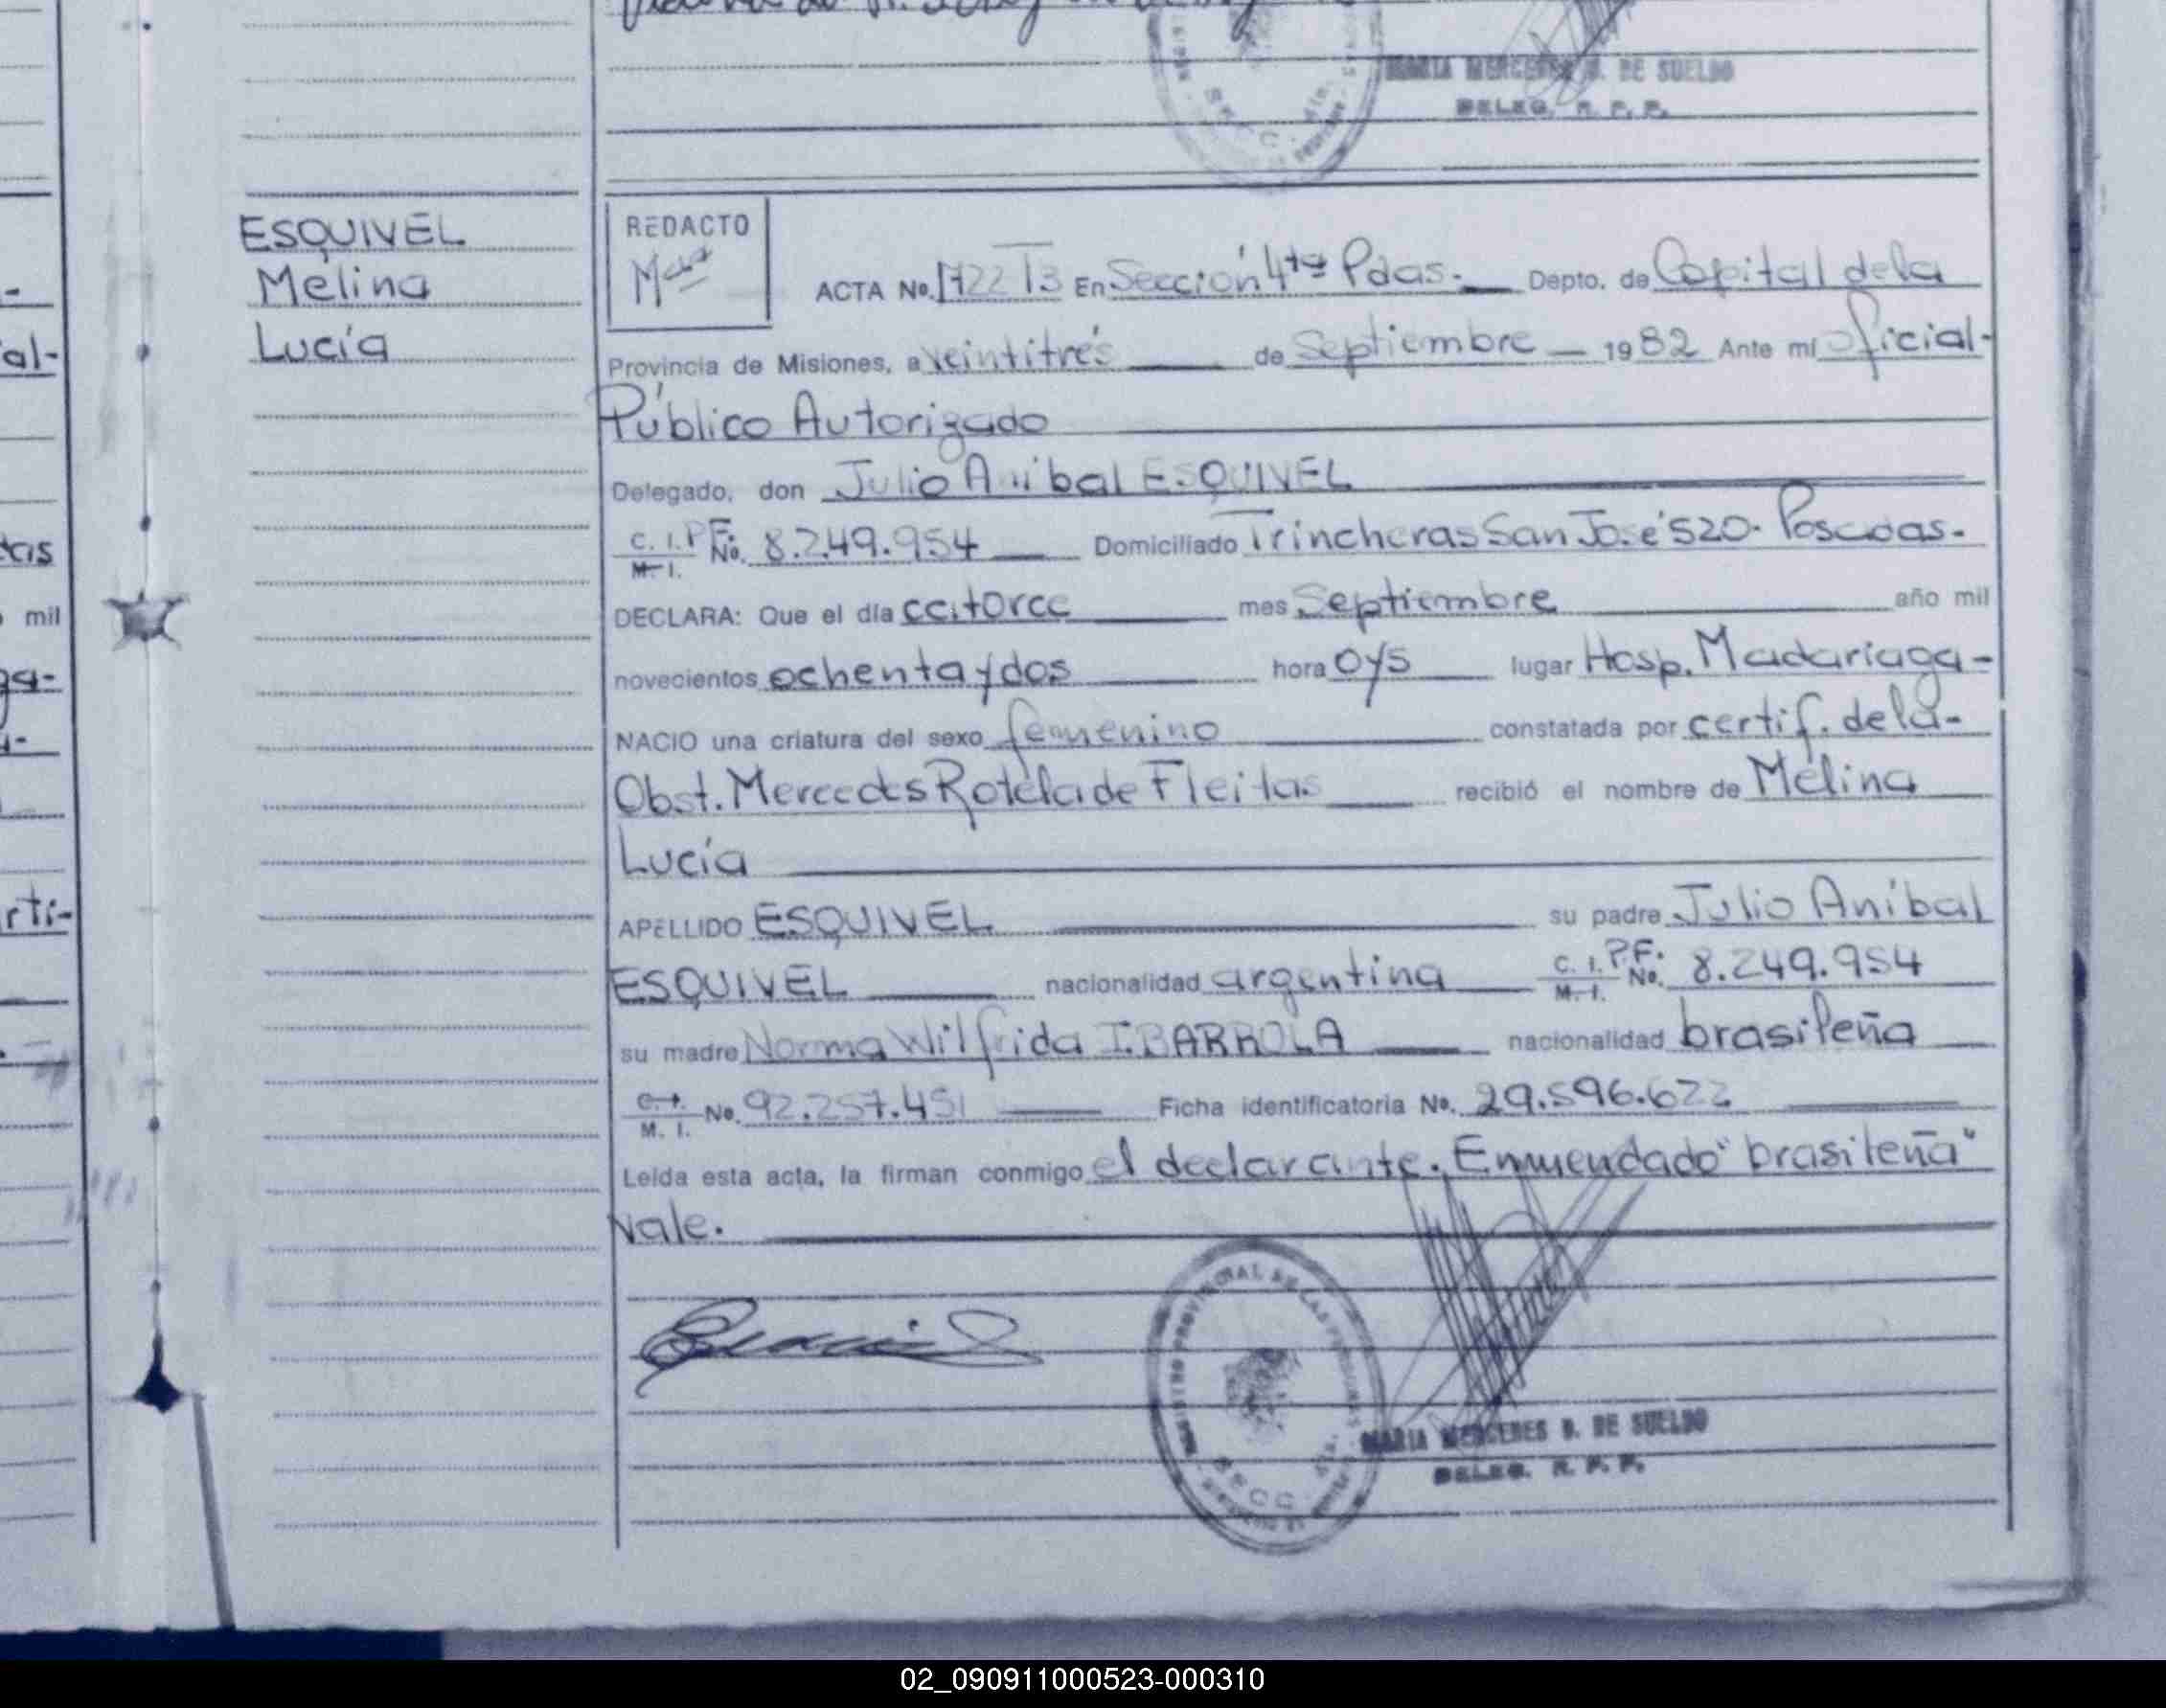 MARIA MERCEDES D. DE SUELDO
DELEG. R. P. P.
ESQUIVEL
Melina
Lucía
REDACTO
ACTA No. 1722 T3 En Sección 4ta Pdas. Depto. de Capital de la
Provincia de Misiones, a veintitrés de Septiembre 1982 Ante mí Oficial-
Público Autorizado
Delegado, don Julio Anibal ESQUIVEL
C. I. P.F. M. I. No. 8.249.954 Domiciliado Trincheras San José 520. Posadas.
DECLARA: Que el día catorce mes Septiembre año mil
novecientos ochenta y dos hora 0 y 5 lugar Hosp. Madariaga-
NACIO una criatura del sexo femenino constatada por certif. de la-
Obst. Mercedes Rotela de Fleitas recibió el nombre de Melina
Lucía
APELLIDO ESQUIVEL su padre Julio Anibal
ESQUIVEL nacionalidad argentina C. I. P.F. M. I. No. 8.249.954
su madre Norma Wilfrida IBARROLA nacionalidad brasileña
C. I. M. I. No. 92.257.451 Ficha identificatoria No. 29.596.622
Leída esta acta, la firman conmigo el declarante. Enmendado "brasileña"
Vale.
REGISTRO PROVINCIAL DE LAS PERSONAS
SECC. 4ta.
MARIA MERCEDES D. DE SUELDO
DELEG. R. P. P.
02_090911000523-000310